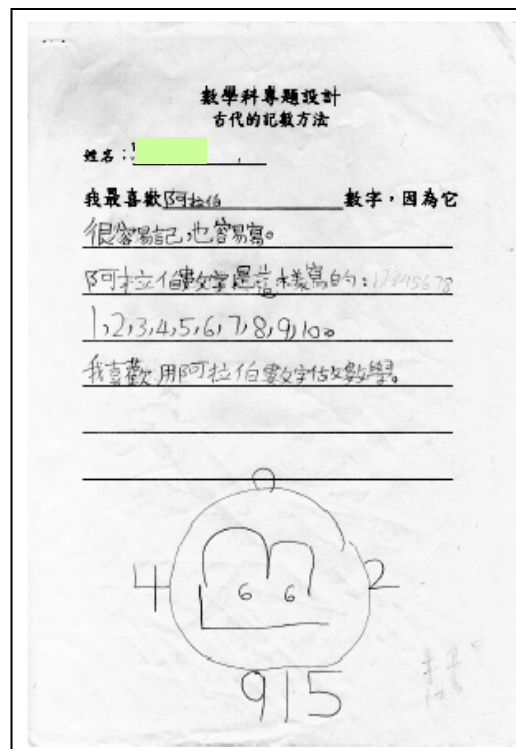 數學科專題設計
古代的記數方法
姓名:
我最喜歡阿拉伯數字,因為它
很容易記,也容易寫。
阿拉伯數字是這樣寫的:12345678
1,2,3,4,5,6,7,8,9,10。
我喜歡用阿拉伯數字做數學。
4 6 6 2
915